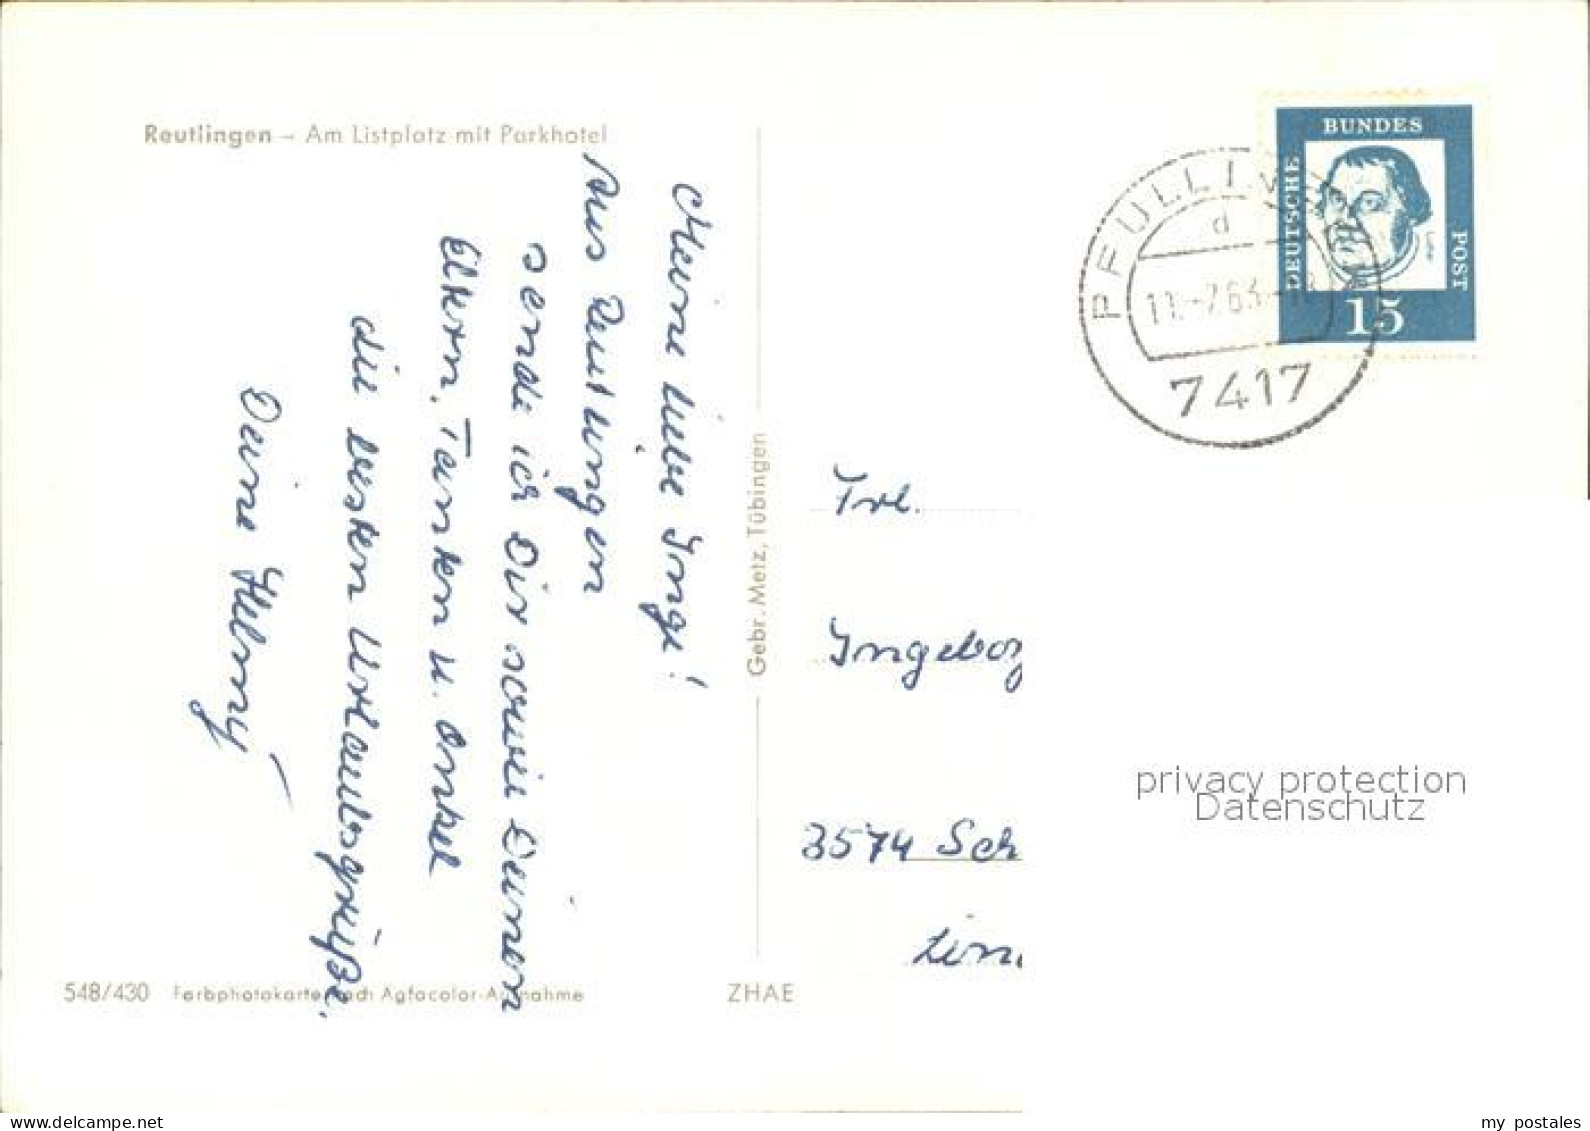 Reutlingen – Am Listplatz mit Parkhotel
Meine liebe Inge!
Aus Reutlingen
sende ich Dir sowie Deinen
Eltern, Tanten u. Onkel
die besten Urlaubsgrüße.
Deine Helmy
548/430 Farbphotokarte nach Agfacolor-Aufnahme
ZHAE
Gebr. Metz, Tübingen
DEUTSCHE
BUNDES
POST
15
PFULLINGEN
d
11.-7.63.-18
7417
Frl.
Ingeborg
3574 Sch
privacy protection
Datenschutz
my postales
www.delcampe.net